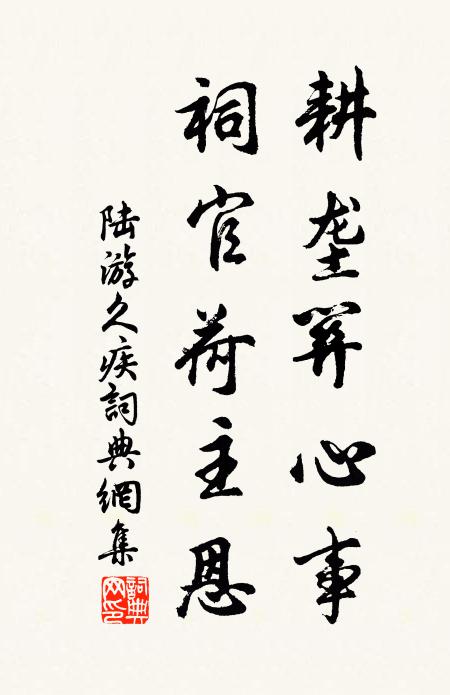 耕垄关心事
祠官荷主恩
陆游久疾詞典網集
詞典网印